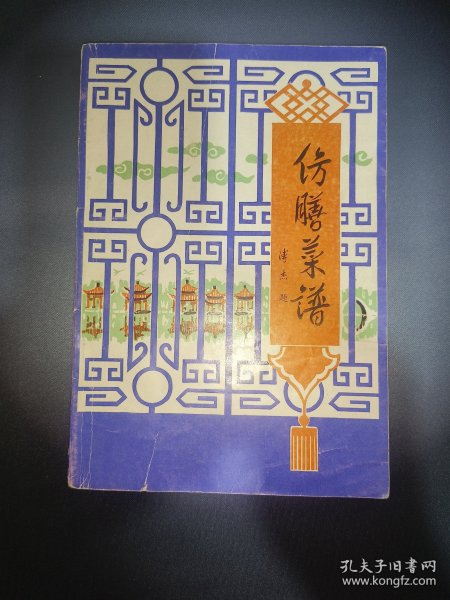 仿膳菜谱
溥杰题
孔夫子旧书网
www.kongfz.com